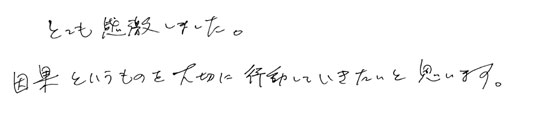 とても感激しました。
因果というものを大切に行動していきたいと思います。